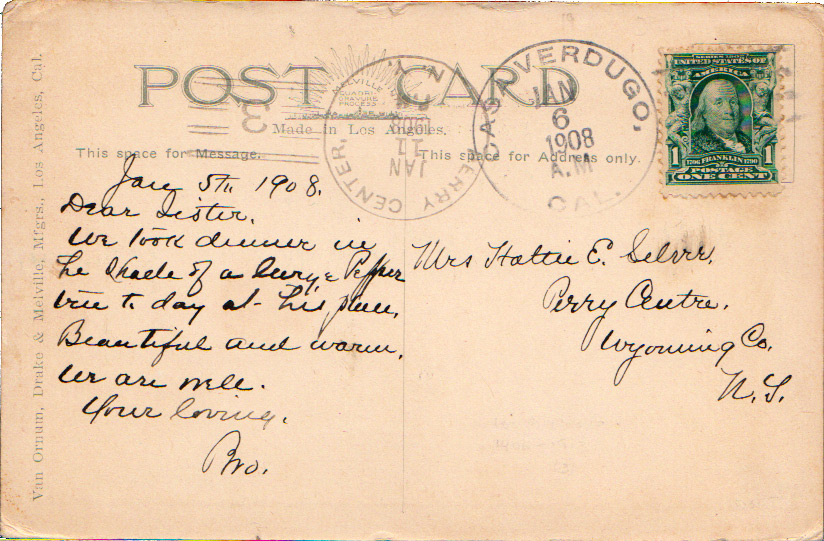 POST CARD
MELVILLE
QUADRI
GRAVURE
PROCESS
Made in Los Angeles.
This space for Message.
This space for Address only.
Van Ornum, Drake & Melville, Mfgrs., Los Angeles, Cal.
CASA VERDUGO, CAL.
JAN
6
1908
A.M
PERRY CENTER, N.Y.
JAN
11
1908
SERIES 1902
UNITED STATES OF
AMERICA
1 1706 FRANKLIN 1790 1
POSTAGE
ONE CENT
Jan 5th 1908.
Dear Sister.
We took dinner in
the shade of a large Pepper
tree to day at this place,
Beautiful and warm,
we are well.
Your loving,
Bro.
Mrs Hattie E.
Perry Centre,
Wyoming Co,
N.Y.